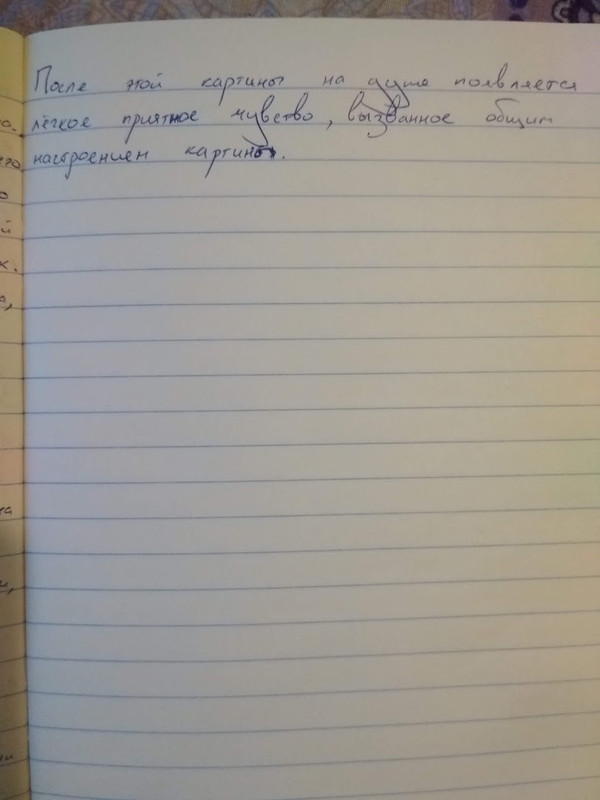 После этой картины на душе появляется
лёгкое приятное чувство, вызванное общим
настроением картины.